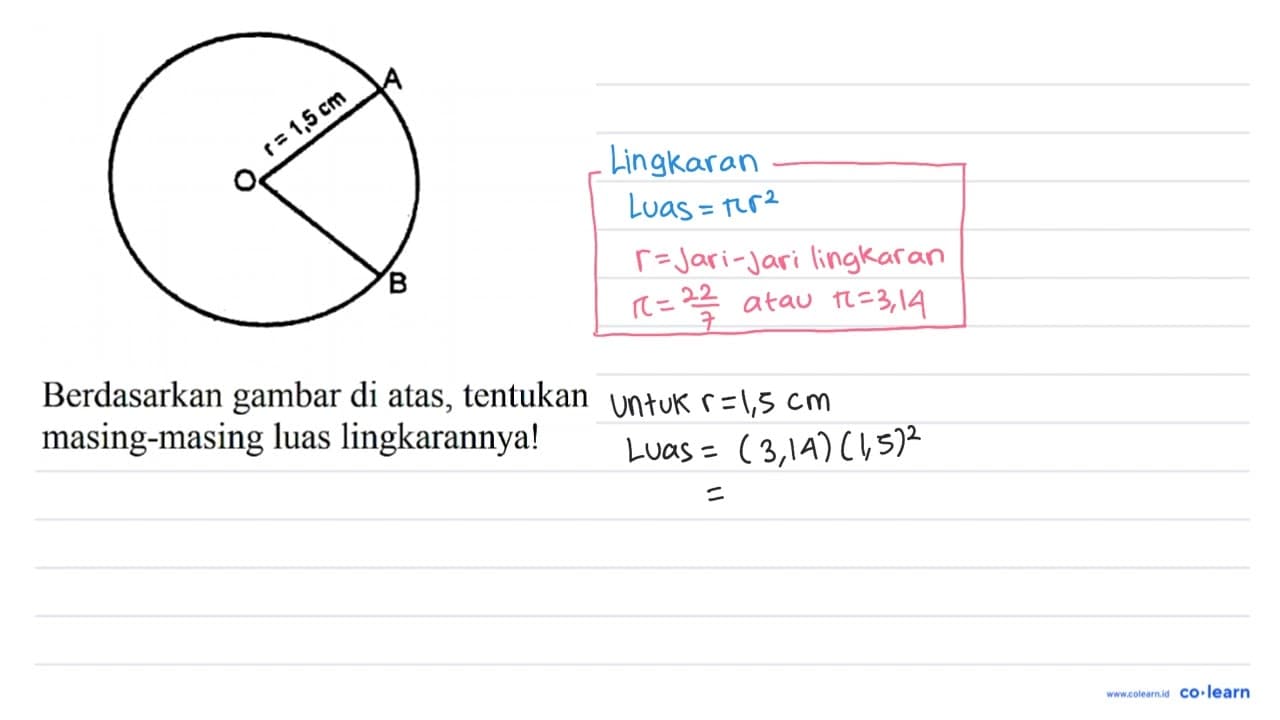 A
r = 1,5 cm
O
B
Berdasarkan gambar di atas, tentukan
masing-masing luas lingkarannya!
Lingkaran
Luas = πr²
r = Jari-Jari lingkaran
π = 22/7 atau π = 3,14
Untuk r = 1,5 cm
Luas = (3,14)(1,5)²
=
www.colearn.id co·learn